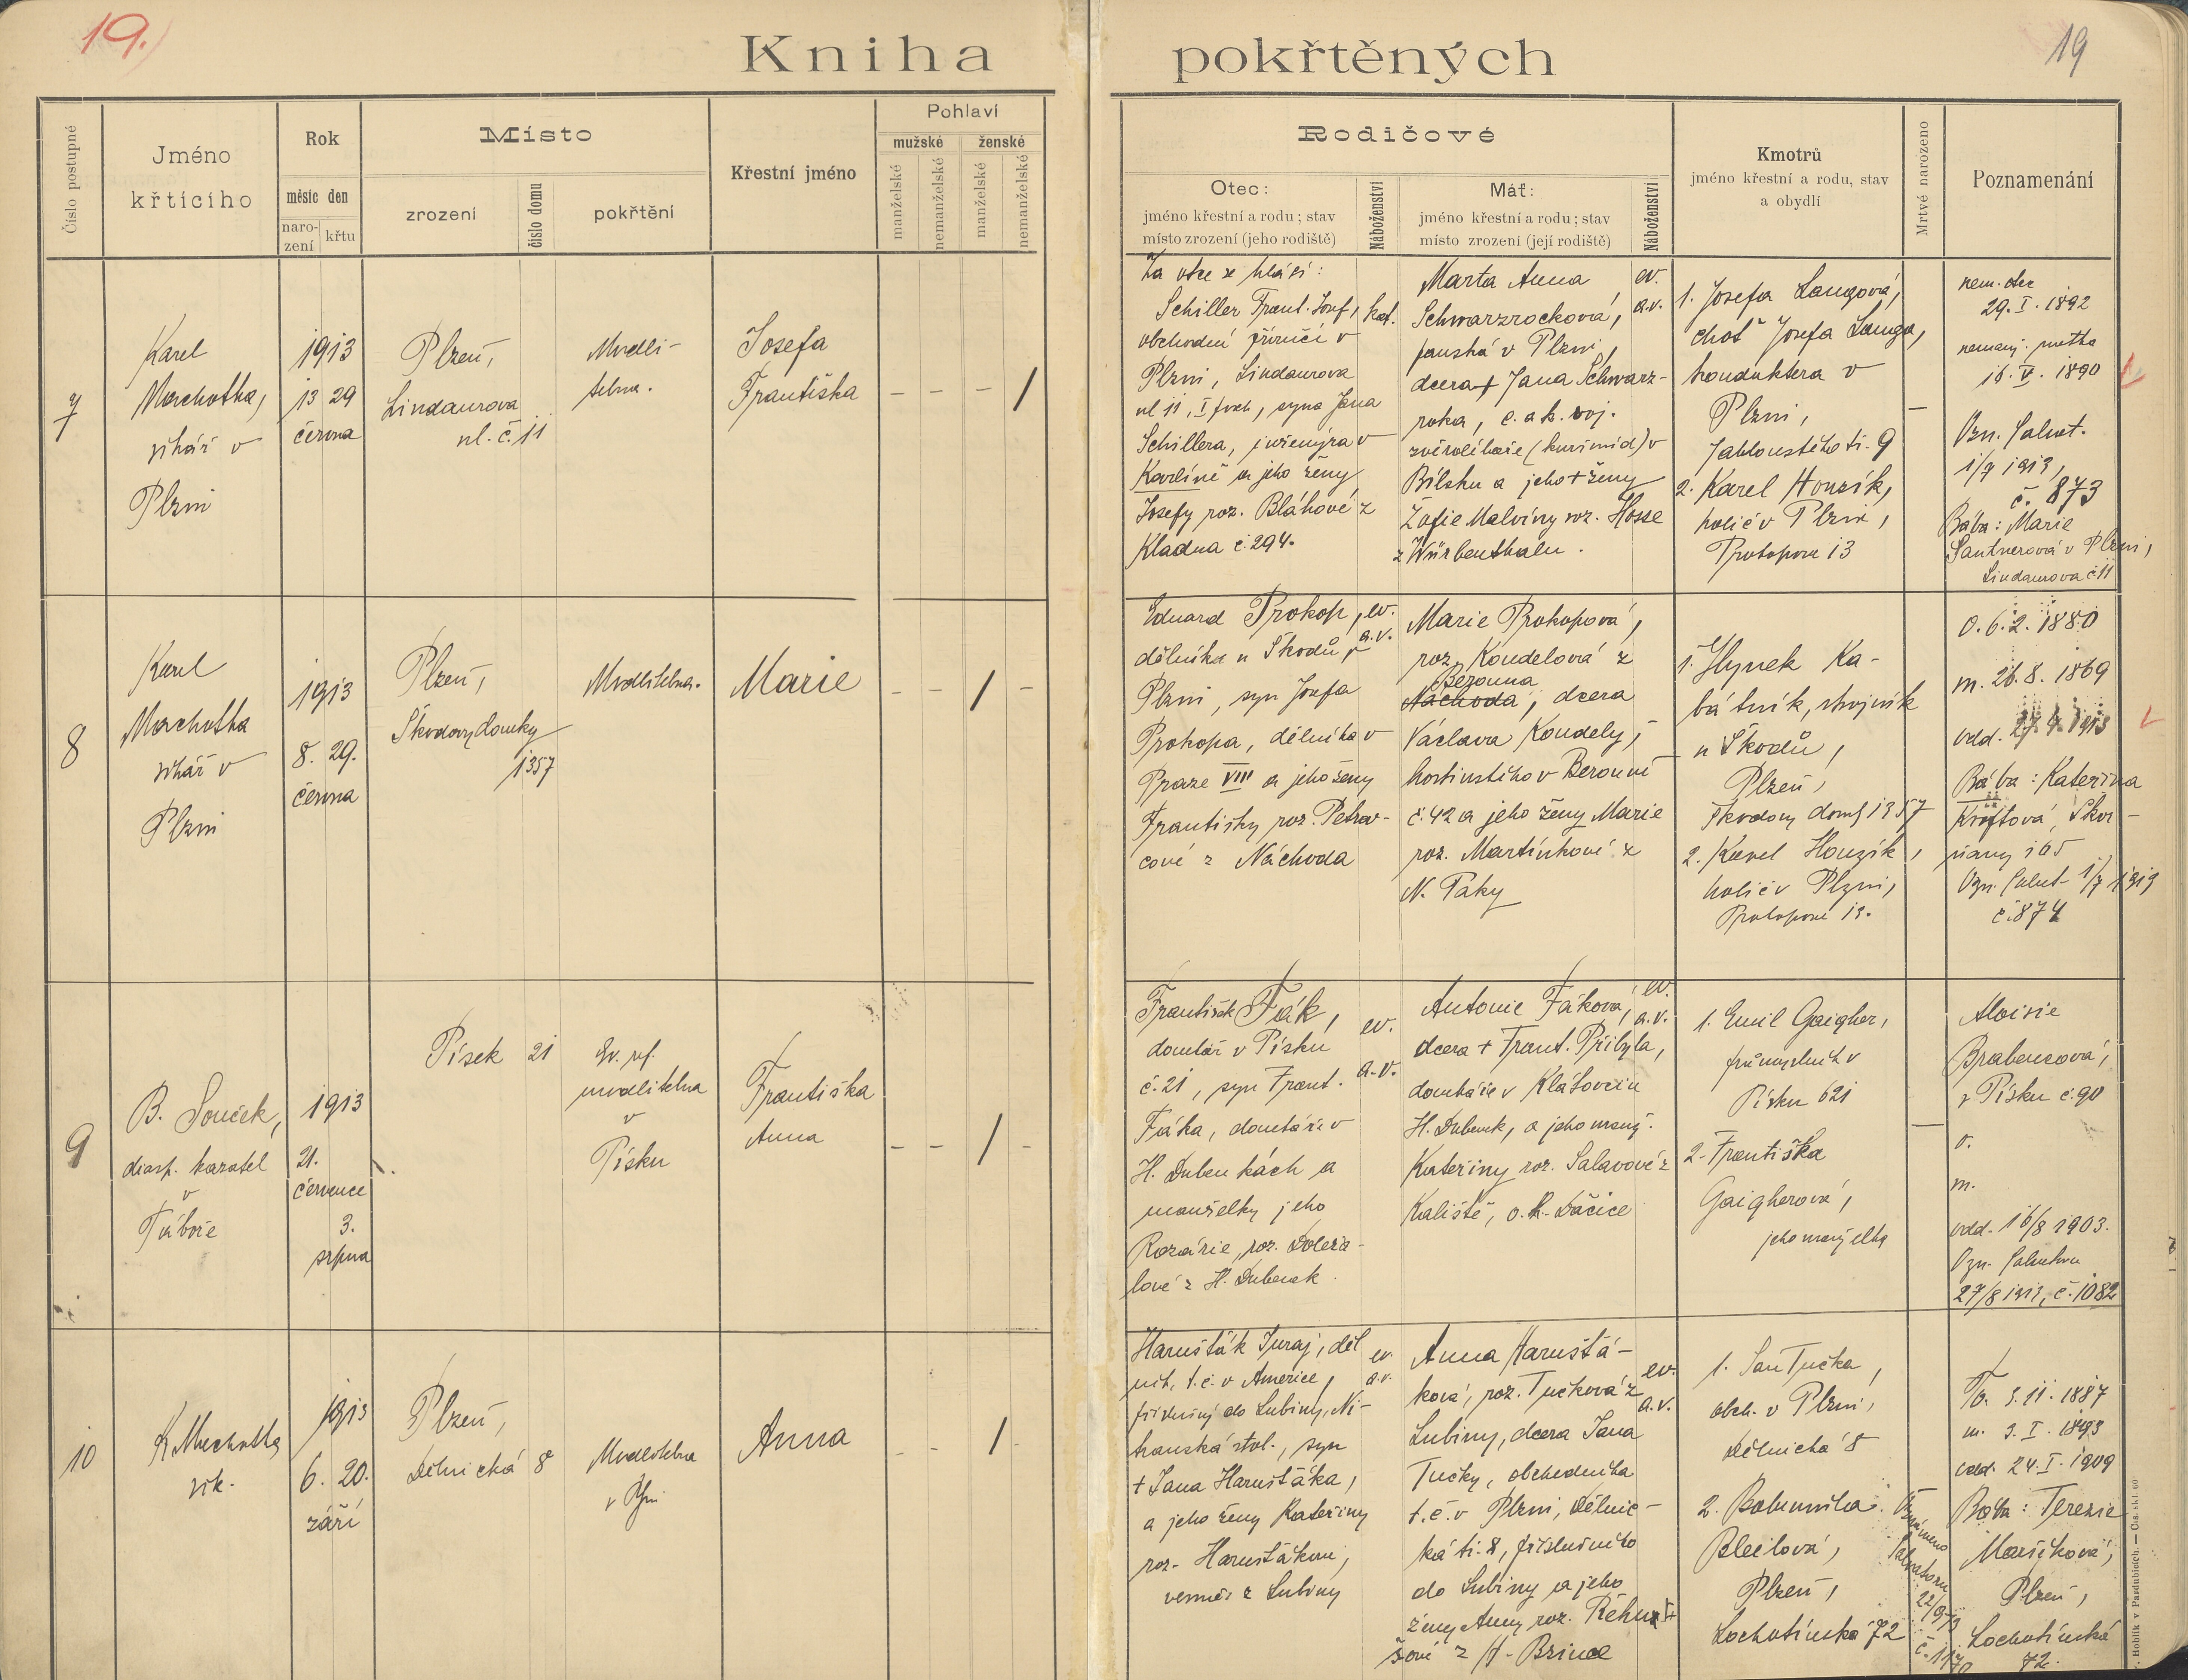 19.)
Kniha pokřtěných
19
Číslo postupné
Jméno
křtícího
Rok
měsíc den
naro-
zení
křtu
Místo
zrození
číslo domu
pokřtění
Křestní jméno
Pohlaví
mužské
ženské
manželské
nemanželské
manželské
nemanželské
Rodičové
Otec:
jméno křestní a rodu; stav
místo zrození (jeho rodiště)
Náboženství
Máť:
jméno křestní a rodu; stav
místo zrození (její rodiště)
Náboženství
Kmotrů
jméno křestní a rodu, stav
a obydlí
Mrtvě narozeno
Poznamenání
7
Karel
Machotka,
vikář v
Plzni
1913
13 29
června
Plzeň,
Lindaurova
ul. č. 11
Modli-
tebna.
Josefa
Františka
– – – /
Za otce se hlásí:
Schiller Frant. Josef,
obchodní příručí v
Plzni, Lindaurova
ul 11, I posch, syna Jana
Schillera, inženýra v
Karlíně a jeho ženy
Josefy roz. Bláhové z
Kladna č. 294.
kat.
Marta Anna
Schwarzrocková,
panská v Plzni,
dcera + Jana Schwarz-
roka, c. a k. voj.
zvěrolékaře (kuršmíd) v
Bílsku a jeho + ženy
Žofie Malvíny roz. Hosse
z Würbenthalu.
ev.
a.v.
1. Josefa Langová,
choť Josefa Langa,
konduktera v
Plzni,
Jablonského tř. 9
2. Karel Houzík,
holič v Plzni,
Protopova 13
–
nem. otec
29. I. 1892
nemanž. matka
18. V. 1890
Ozn. Salvat.
1/7 1913,
č. 873
Bába: Marie
Santnerová v Plzni,
Lindaurova č 11
8
Karel
Machotka
vikář v
Plzni
1913
8. 29.
června
Plzeň,
Škodovy domky
1357
Modlitebna.
Marie
– – / –
Eduard Prokop,
dělník u Škodů, v
Plzni, syn Josefa
Prokopa, dělníka v
Praze VIII a jeho ženy
Františky roz. Petrov-
cové z Náchoda
ev.
a.v.
Marie Prokopová,
roz. Koudelová z
Berouna
Náchoda, dcera
Václava Koudely,
hostinského v Berouně
č. 42 a jeho ženy Marie
roz. Martínkové z
N. Paky
1. Hynek Ka-
bátník, strojník
u Škodů,
Plzeň,
Škodovy domy 1357
2. Karel Houzík,
holič v Plzni,
Protopova 13.
o. 6. 2. 1880
m. 26. 8. 1869
odd. 27. 4. 1913
Bába: Kateřina
Kroftová, Skvr-
ňany 165
Ozn. Salvat 1/7 1913
č. 874
9
B. Souček,
diasp. kazatel
v
Táboře
1913
21.
července
3.
srpna
Písek 21
Ev. ref.
modlitebna
v
Písku
Františka
Anna
– – / –
František Fiák,
domkář v Písku
č. 21, syn Frant.
Fiáka, domkáře v
H. Dubenkách a
manželky jeho
Rozárie, roz. Doleža-
lové z H. Dubenek.
ev.
a.v.
Antonie Fiáková,
dcera + Frant. Přibyla,
domkáře v Klátovcích
H. Dubenk, a jeho manž.
Kateřiny roz. Salavové z
Kaliště, o. h. Dačice
ev.
a.v.
1. Emil Gaigher,
průmyslník v
Písku 621
2. Františka
Gaigherová,
jeho manželka
–
Aloisie
Brabencová,
v Písku č. 90
o.
m.
odd. 16/8 1903.
Ozn. Salvatoru
27/8 1913, č. 1082
10
K Machotka
vik.
1913
6. 20.
září
Plzeň,
Dělnická 8
Modlitebna
v Plzni
Anna
– – / –
Haruštiák Juraj, děl
ník, t. č. v Americe,
příslušný do Lubiny, Ni-
transká stol., syn
+ Jana Haruštiáka,
a jeho ženy Kateřiny
roz. Haruštiákové,
z Lubiny
ev.
a.v.
Anna Haruštiá-
ková, roz. Tučková z
Lubiny, dcera Jana
Tučky, obchodníka
t. č. v Plzni, Dělnic-
ká tř. 8, příslušného
do Lubiny a jeho
ženy Anny roz. Řehu-
šové z H. Bzince
ev.
a.v.
1. Jan Tučka,
obch. v Plzni,
Dělnická 8
2. Bohumila
Bleilová,
Plzeň,
Lochotínská 72
Oznámeno
Salvatoru
22/9 13
č. 1170
o. 3. 11. 1887
m. 3. I. 1893
odd. 24. I. 1909
Bába: Terezie
Maříčková,
Plzeň,
Lochotínská
72.
Hoblík v Pardubicích. — Čís. skl. 60